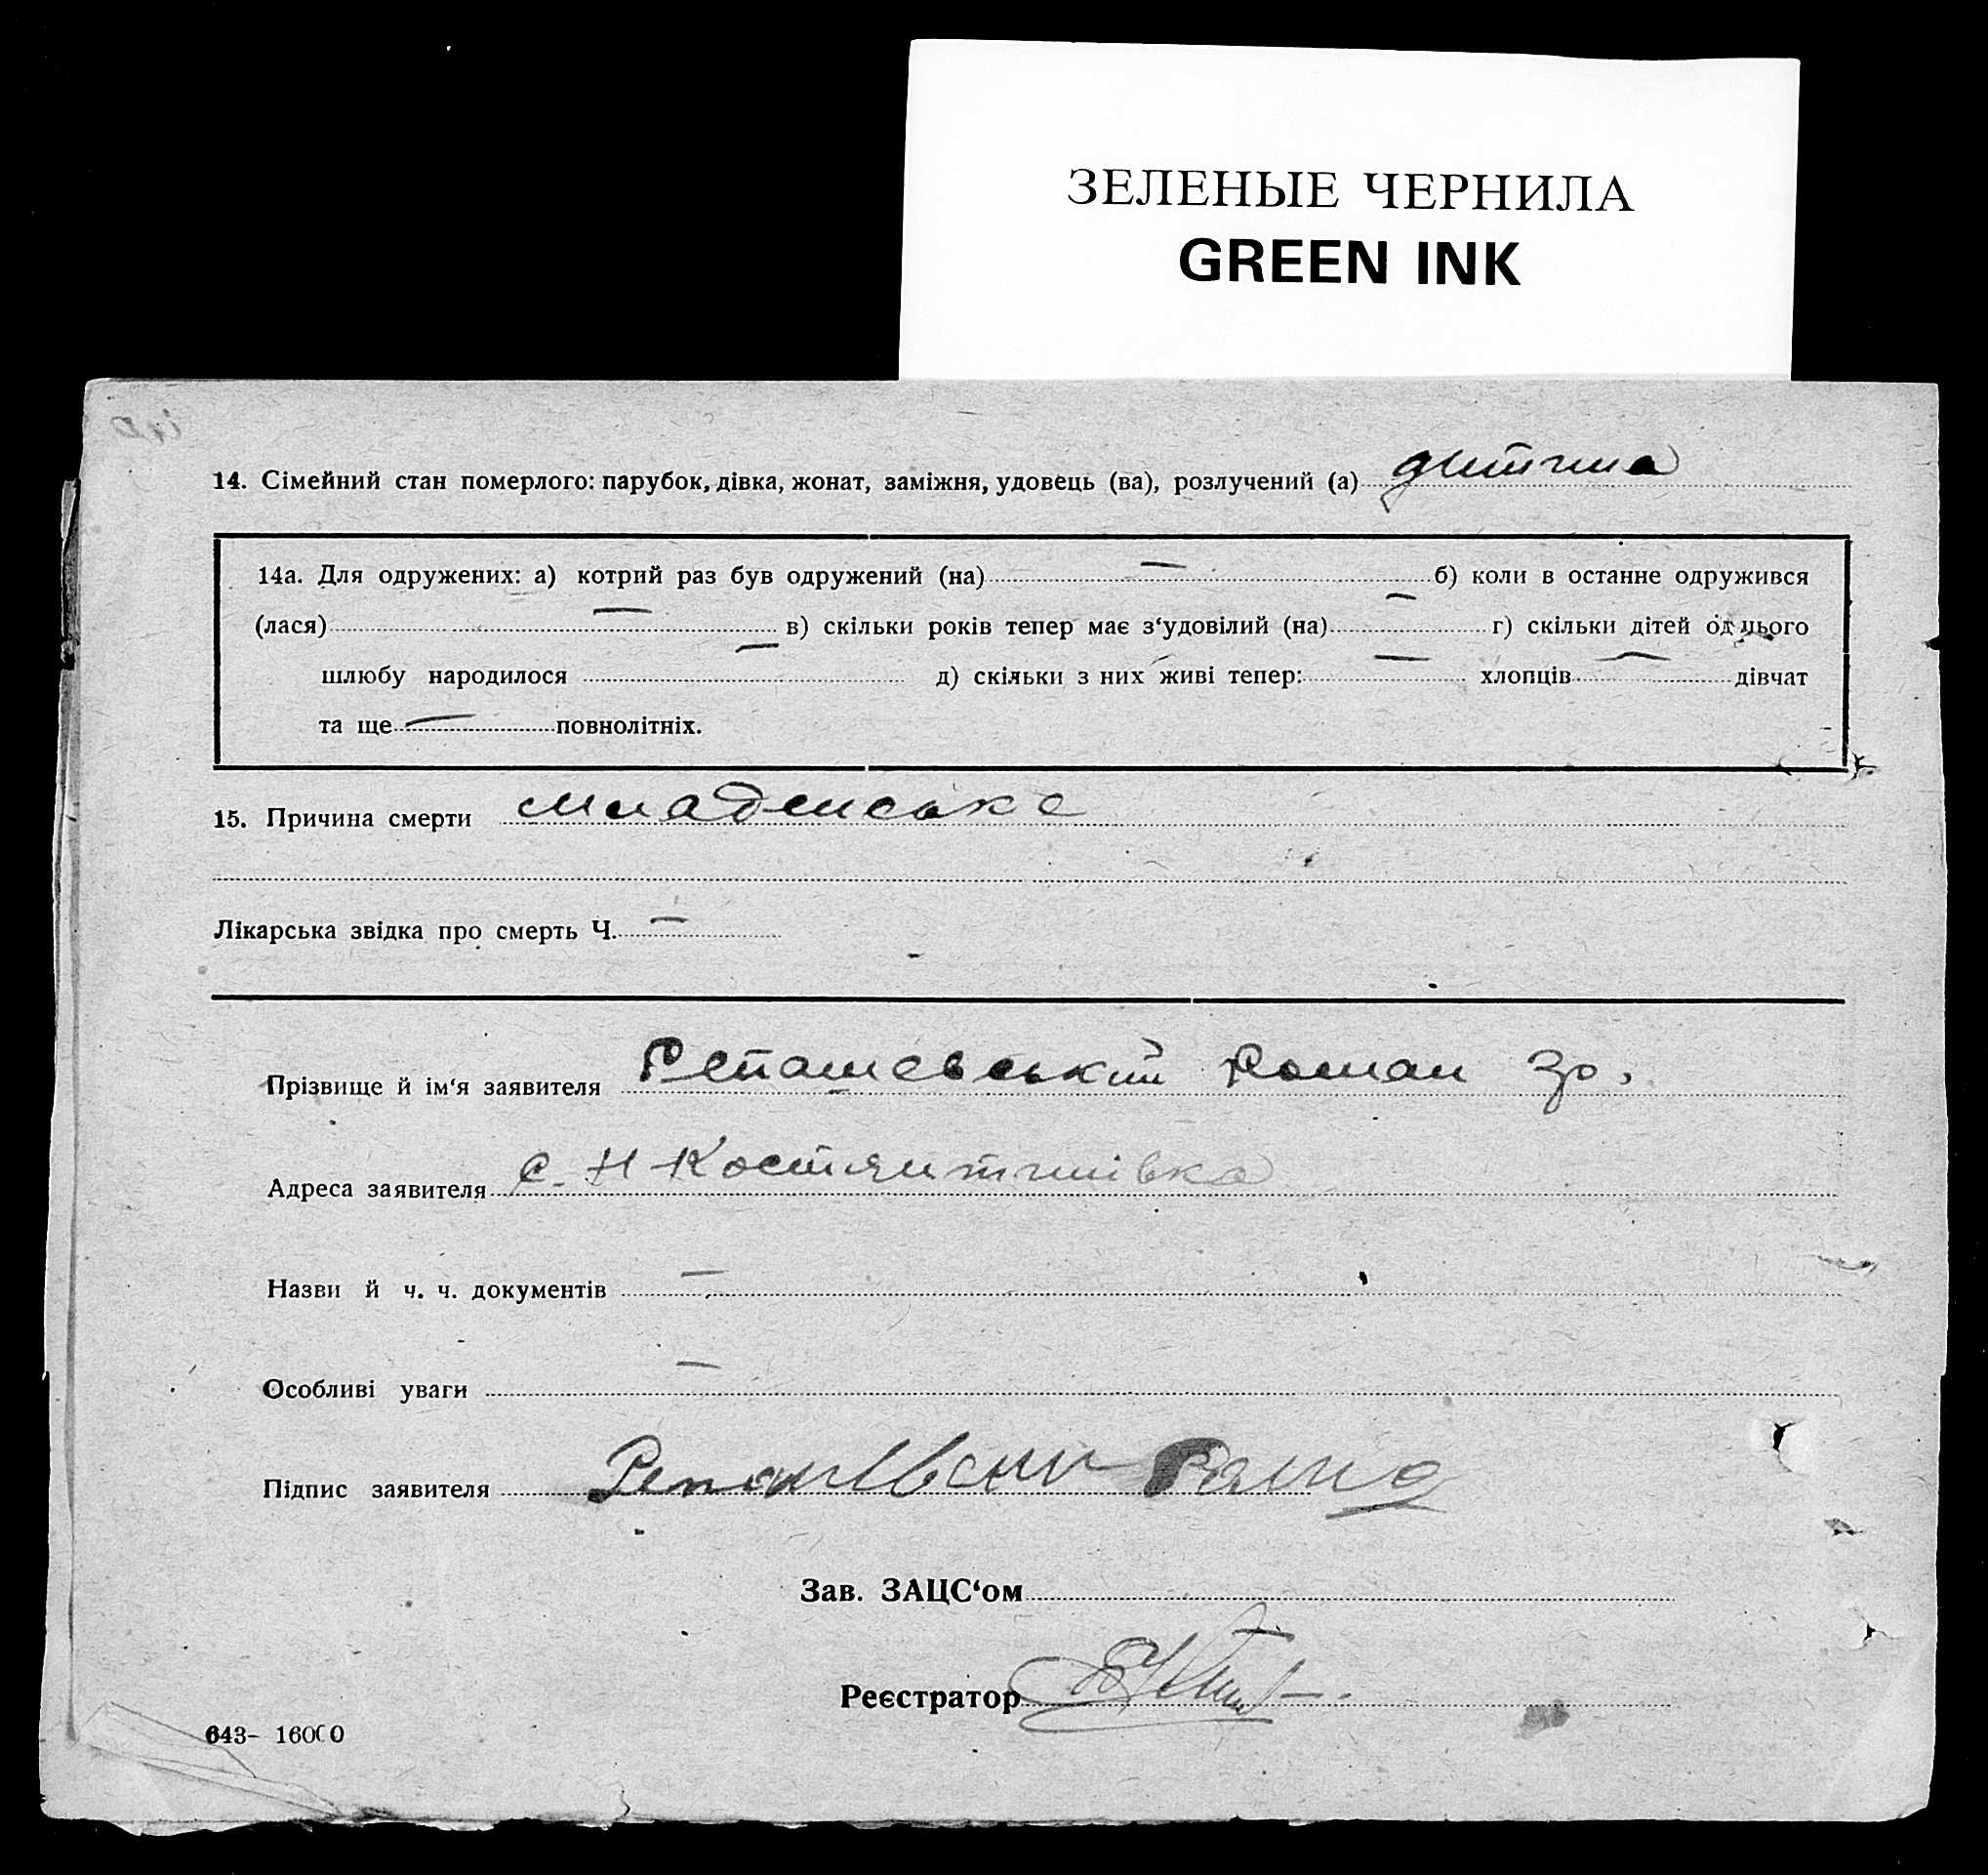 ЗЕЛЕНЫЕ ЧЕРНИЛА
GREEN INK
14. Сімейний стан померлого: парубок, дівка, жонат, заміжня, удовець (ва), розлучений (а) дитина
14а. Для одружених: а) котрий раз був одружений (на) — б) коли в останне одружився
(лася) — в) скільки років тепер має з‘удовілий (на) — г) скільки дітей од цього
шлюбу народилося — д) скільки з них живі тепер: — хлопців — дівчат
та ще — повнолітніх.
15. Причина смерти младенське
Лікарська звідка про смерть Ч. —
Прізвище й ім‘я заявителя Репашевський Роман Гр.
Адреса заявителя с. Н Костянтинівка
Назви й ч. ч. документів —
Особливі уваги —
Підпис заявителя
Зав. ЗАЦС‘ом
Реєстратор
643– 16000